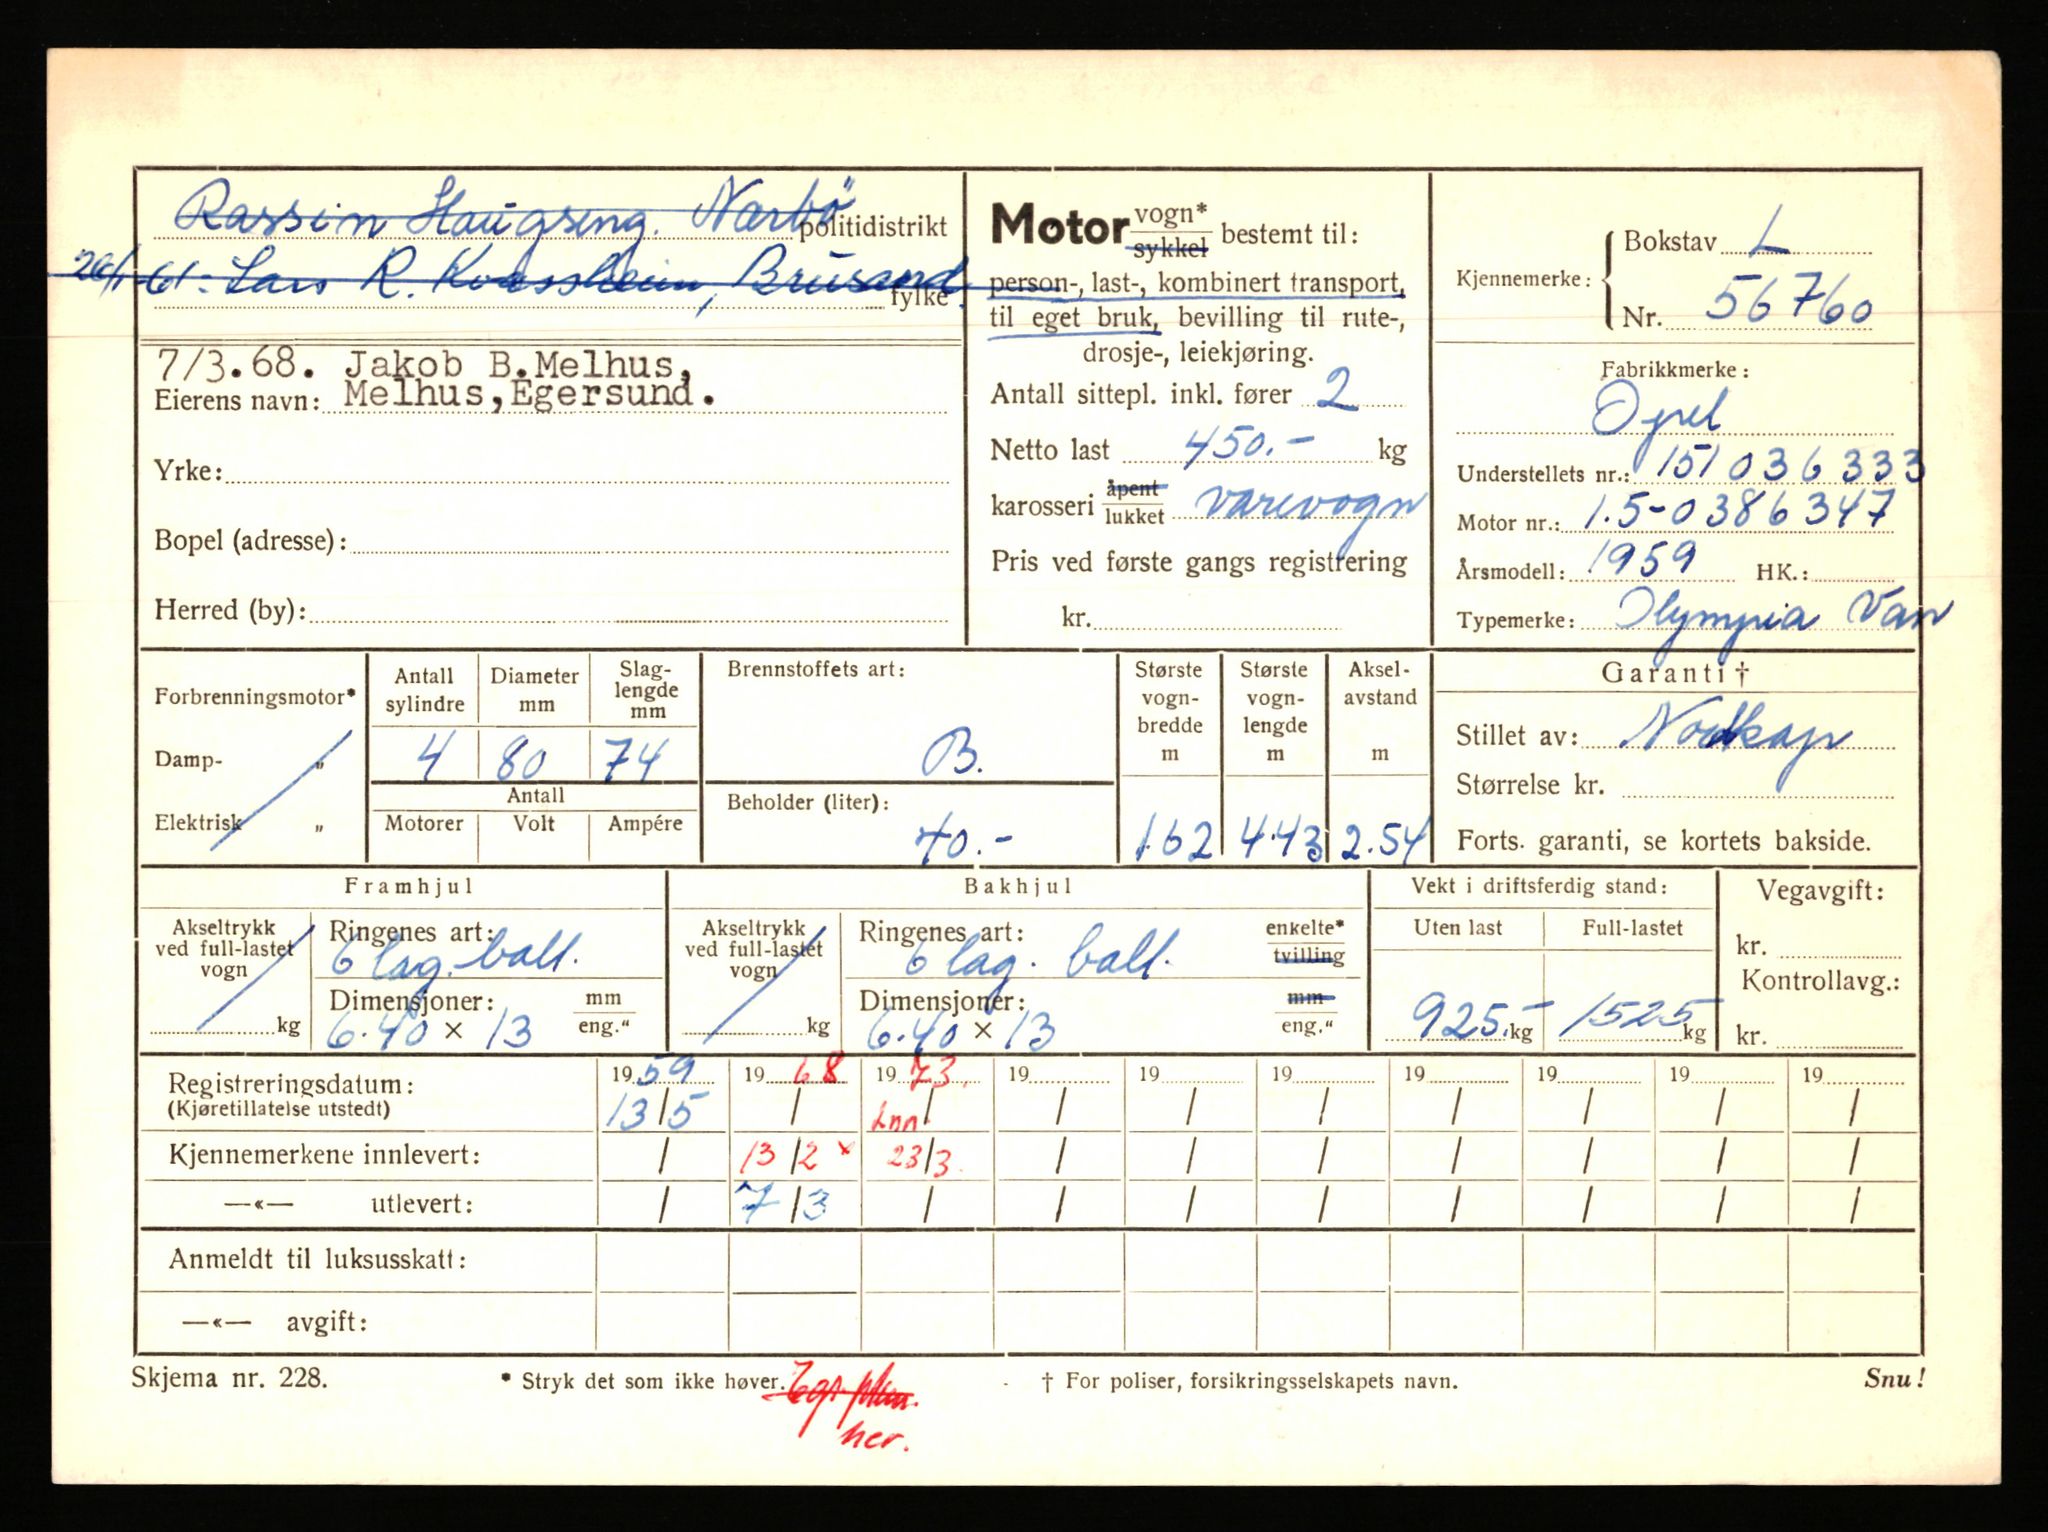 Rassin Haugseng. Nærbö politidistrikt
26/1-61. Lars R. Kvassheim, Brusand. fylke
7/3.68. Jakob B.Melhus,
Eierens navn: Melhus, Egersund.
Yrke:
Bopel (adresse):
Herred (by):
Motor vogn* sykkel bestemt til:
person-, last-, kombinert transport,
til eget bruk, bevilling til rute-,
drosje-, leiekjøring.
Antall sittepl. inkl. fører 2
Netto last 450.- kg
karosseri åpent lukket varevogn
Pris ved første gangs registrering
kr.
Kjennemerke: Bokstav L
Nr. 56760
Fabrikkmerke:
Opel
Understellets nr.: 151036333
Motor nr.: 1.5-0386347
Årsmodell: 1959 HK.:
Typemerke: Olympia Van
Forbrenningsmotor*
Damp- „
Elektrisk „
Antall sylindre Diameter mm Slag-lengde mm
4 80 74
Antall
Motorer Volt Ampére
Brennstoffets art:
B.
Beholder (liter):
40.-
Største vogn-bredde m Største vogn-lengde m Aksel-avstand m
1.62 4.43 2.54
Garanti †
Stillet av: Nordkap
Størrelse kr.
Forts. garanti, se kortets bakside.
Framhjul
Akseltrykk ved full-lastet vogn
kg
Ringenes art:
6 lag. ball.
Dimensjoner: mm
6.40 × 13 eng."
Bakhjul
Akseltrykk ved full-lastet vogn
kg
Ringenes art: enkelte*
6 lag. ball. tvilling
Dimensjoner: mm
6.40 × 13 eng."
Vekt i driftsferdig stand:
Uten last Full-lastet
925.- kg 1525 kg
Vegavgift:
kr.
Kontrollavg.:
kr.
Registreringsdatum: 1959 1968 1973. 19 19 19 19 19 19 19
(Kjøretillatelse utstedt) 13/5 / Inn. / / / / / / / /
Kjennemerkene innlevert: / 13/2 x 23/3. / / / / / / /
—«— utlevert: / 7/3 / / / / / / / /
Anmeldt til luksusskatt:
—«— avgift:
Skjema nr. 228. * Stryk det som ikke høver. † For poliser, forsikringsselskapets navn. Snu!
her.